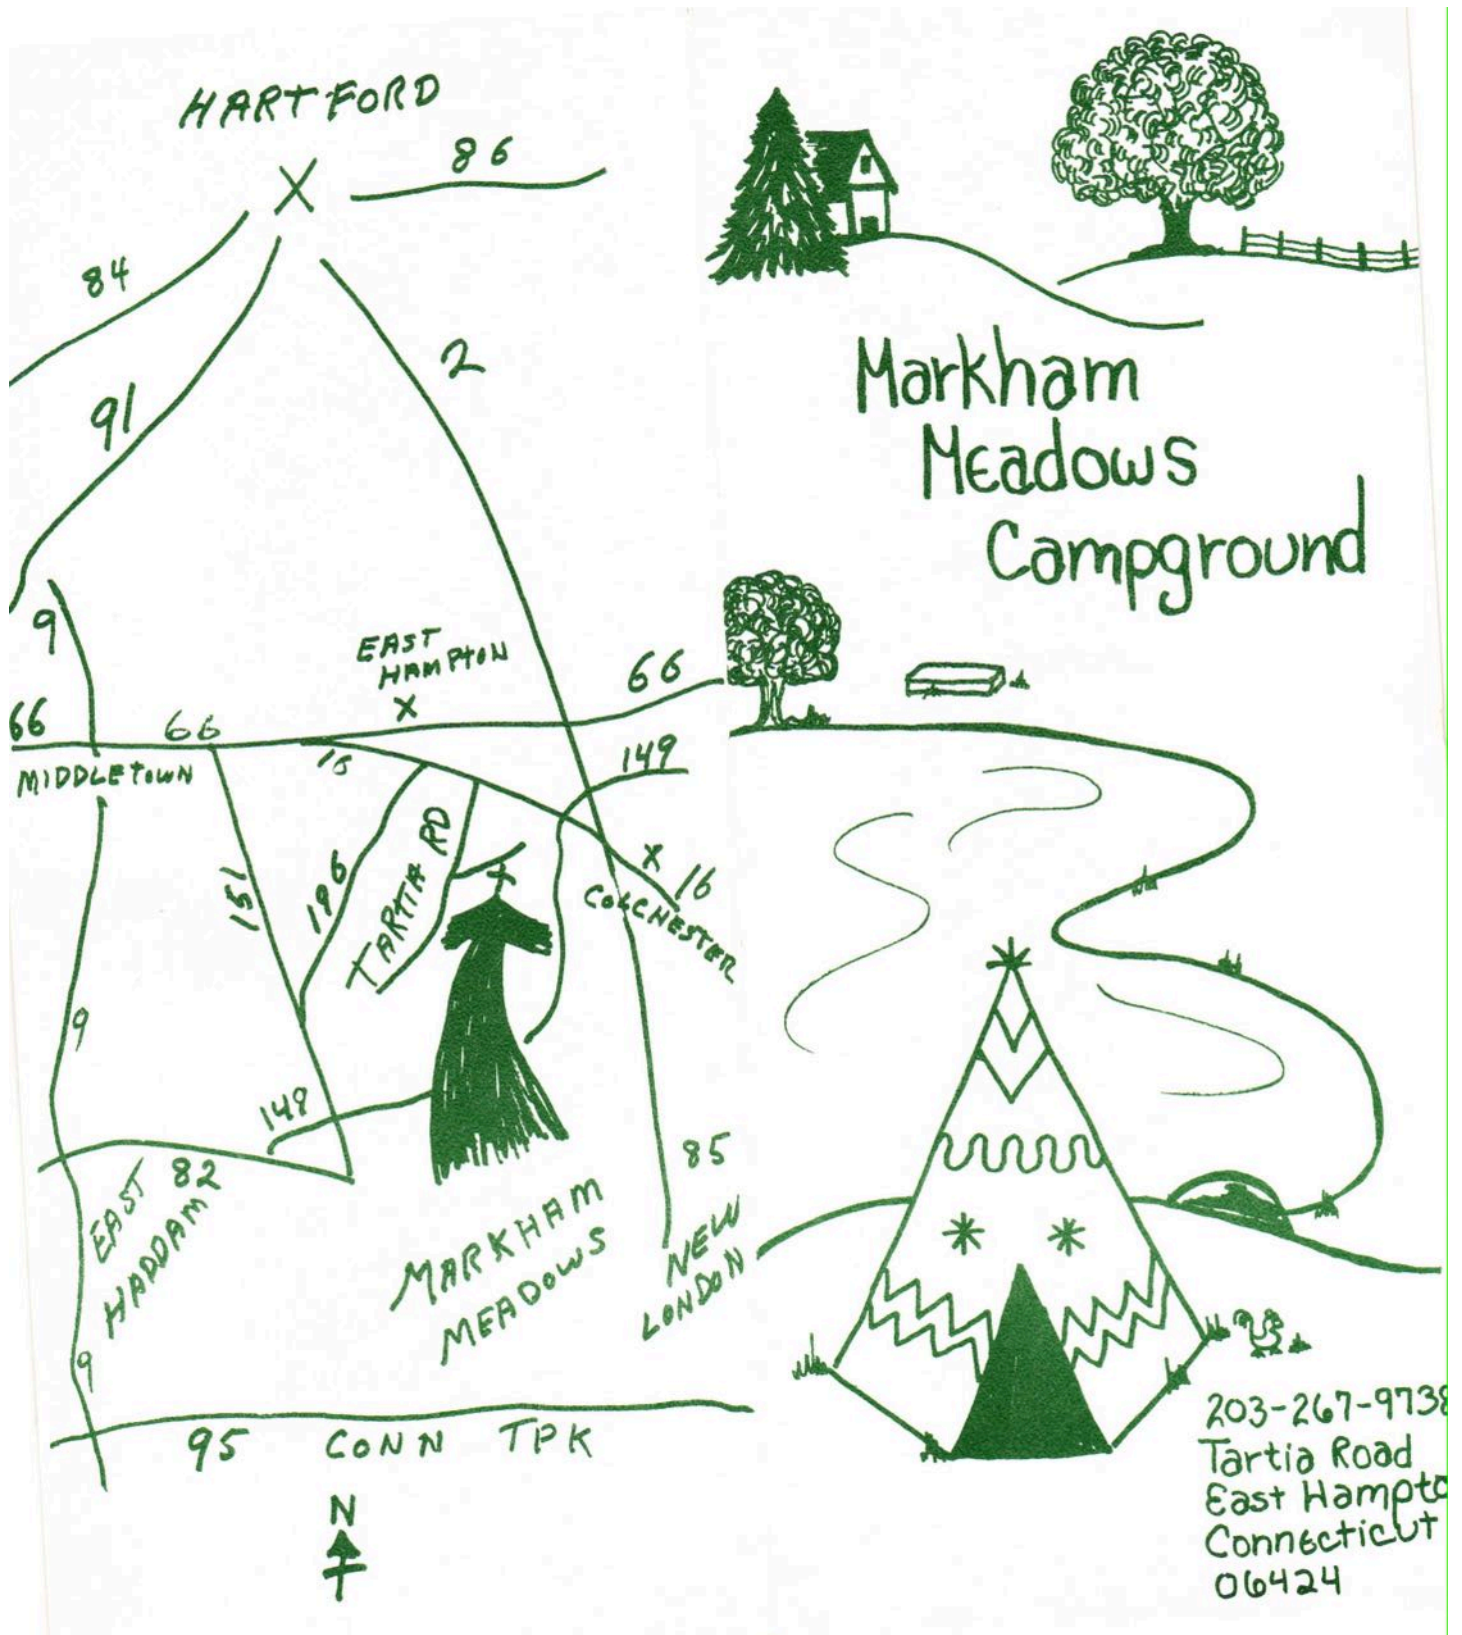 HARTFORD
86
84
2
91
9
EAST
HAMPTON
66
66
66
MIDDLETOWN
16
149
151
196
TARTIA RD
16
COLCHESTER
9
149
82
EAST
HADDAM
85
MARKHAM
MEADOWS
NEW
LONDON
9
95 CONN TPK
N
Markham
Meadows
Campground
203-267-9738
Tartia Road
East Hampto
Connecticut
06424